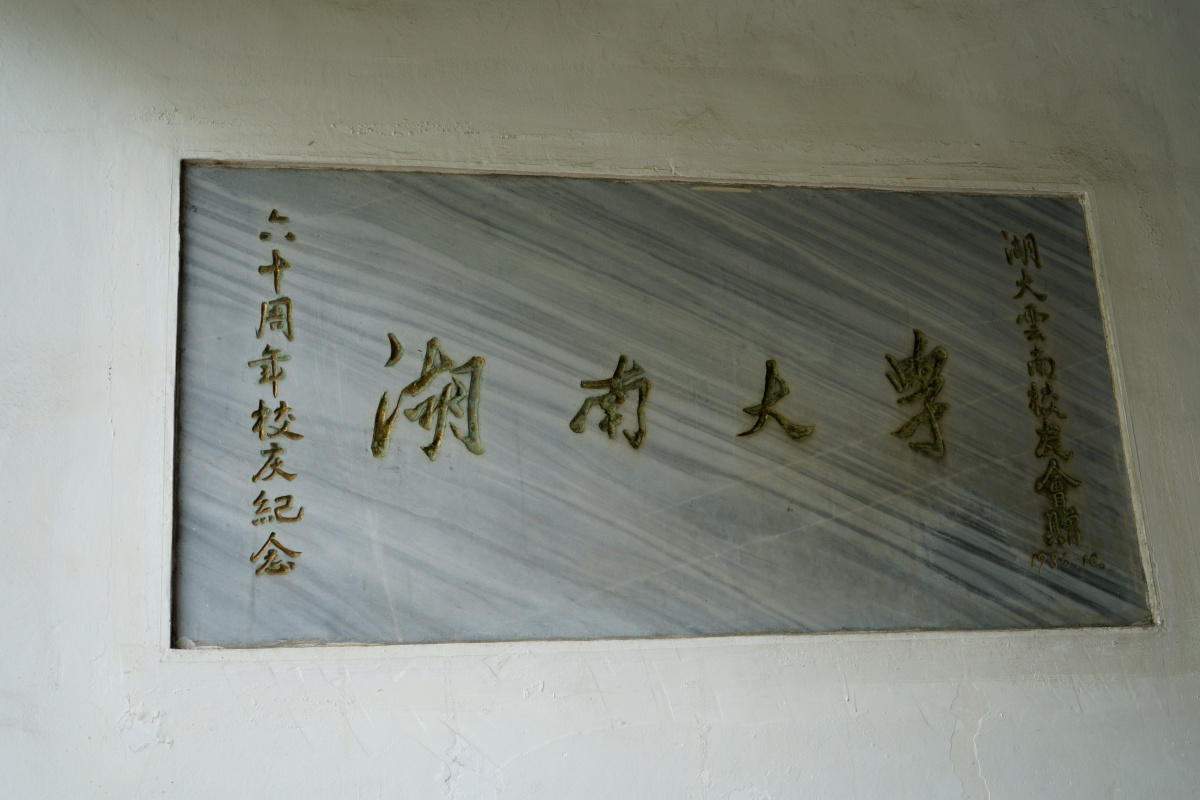 六十周年校庆紀念
湖南大學
湖大雲南校友會贈
1986.10.